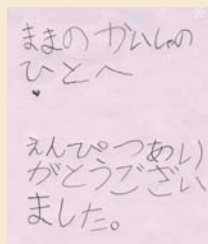 ままの かいしゃの
ひとへ
えんぴつあり
がとうござい
ました。